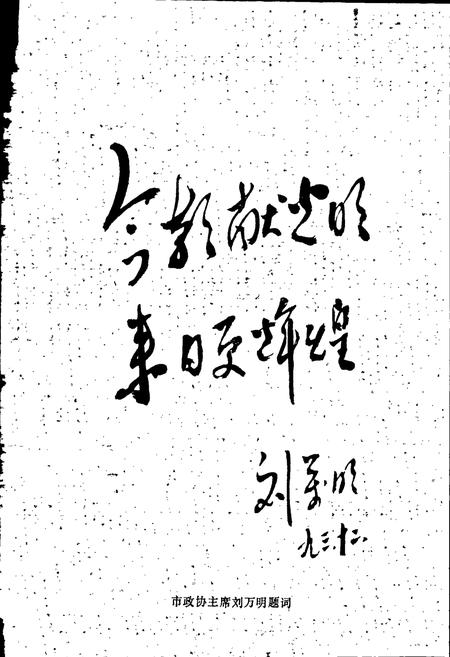 今朝献光明
来日更辉煌
刘万明
九三.十二
市政协主席刘万明题词